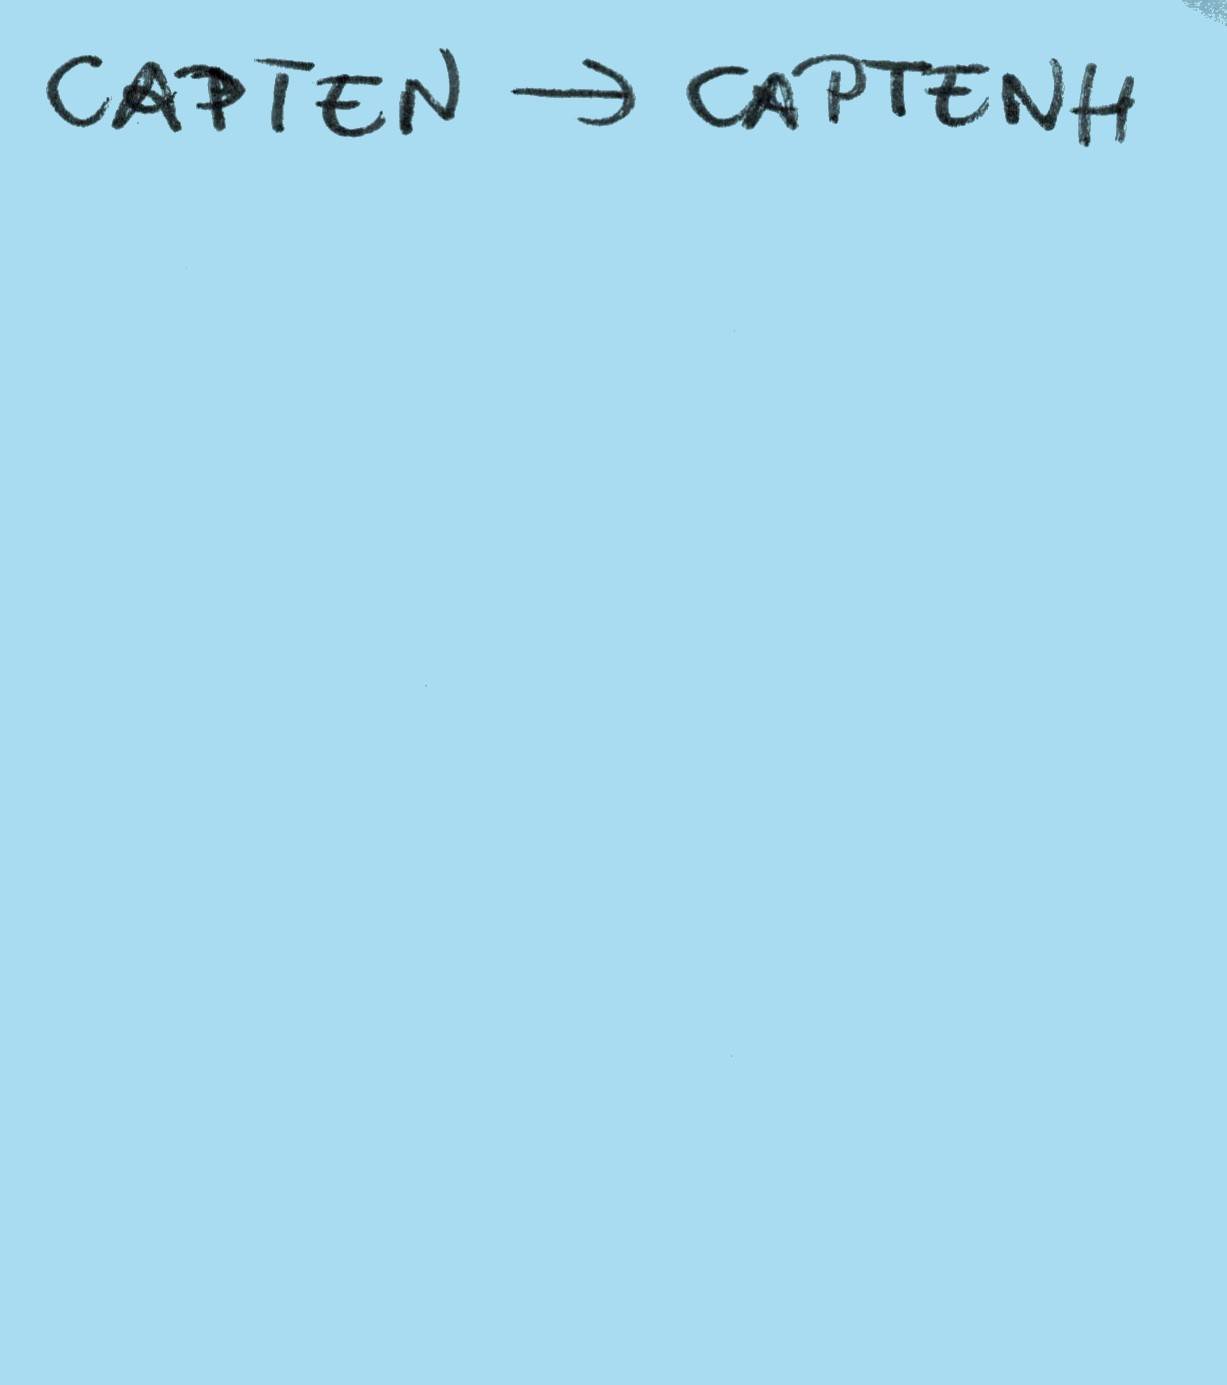 CAPTEN → CAPTENH